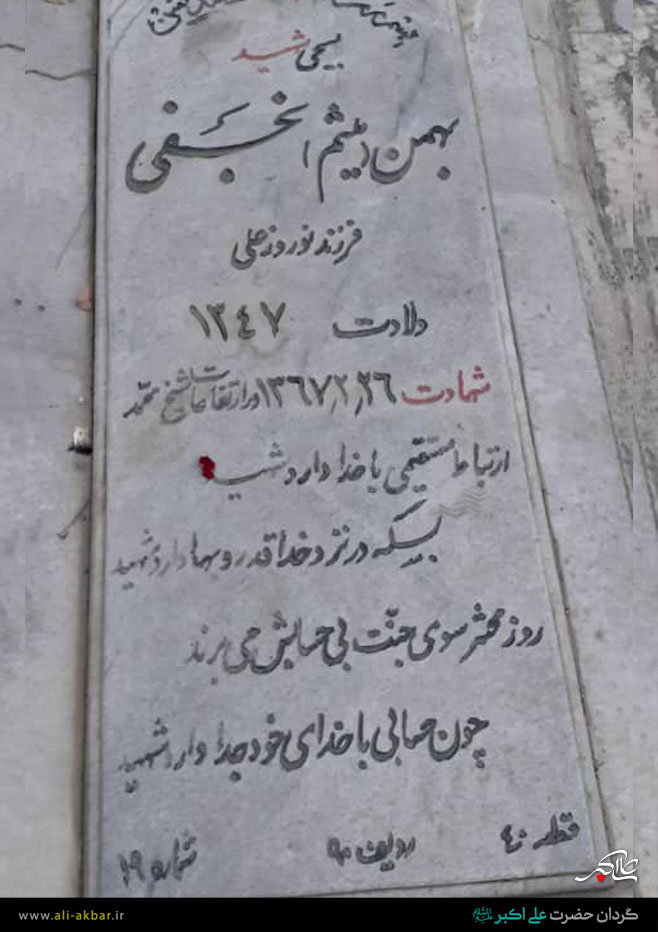 بسیجی شهید
بهمن (میثم) نجفی
فرزند نوروزعلی
ولادت ۱۳٤۷
شهادت ۱۳٦۷٫۲٫۲٦ در ارتفاعات شیخ محمد
ارتباط مستقیمی با خدا دارد شهید
بسیکه در نزد خدا قدر و بها دارد شهید
روز محشر سوی جنّت بی حسابش می برند
چون حسابی با خدای خود جدا دارد شهید
قطعه ٤۰ ردیف ۹۰ شماره ۱۹
علی‌اکبر
www.ali-akbar.ir گردان حضرت علی اکبر